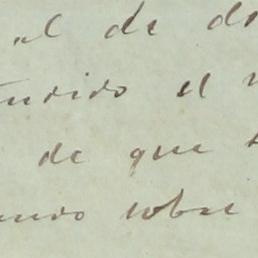 al de de
tendido el
de que
ando sobre